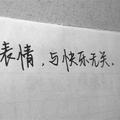 表情，与快乐无关。